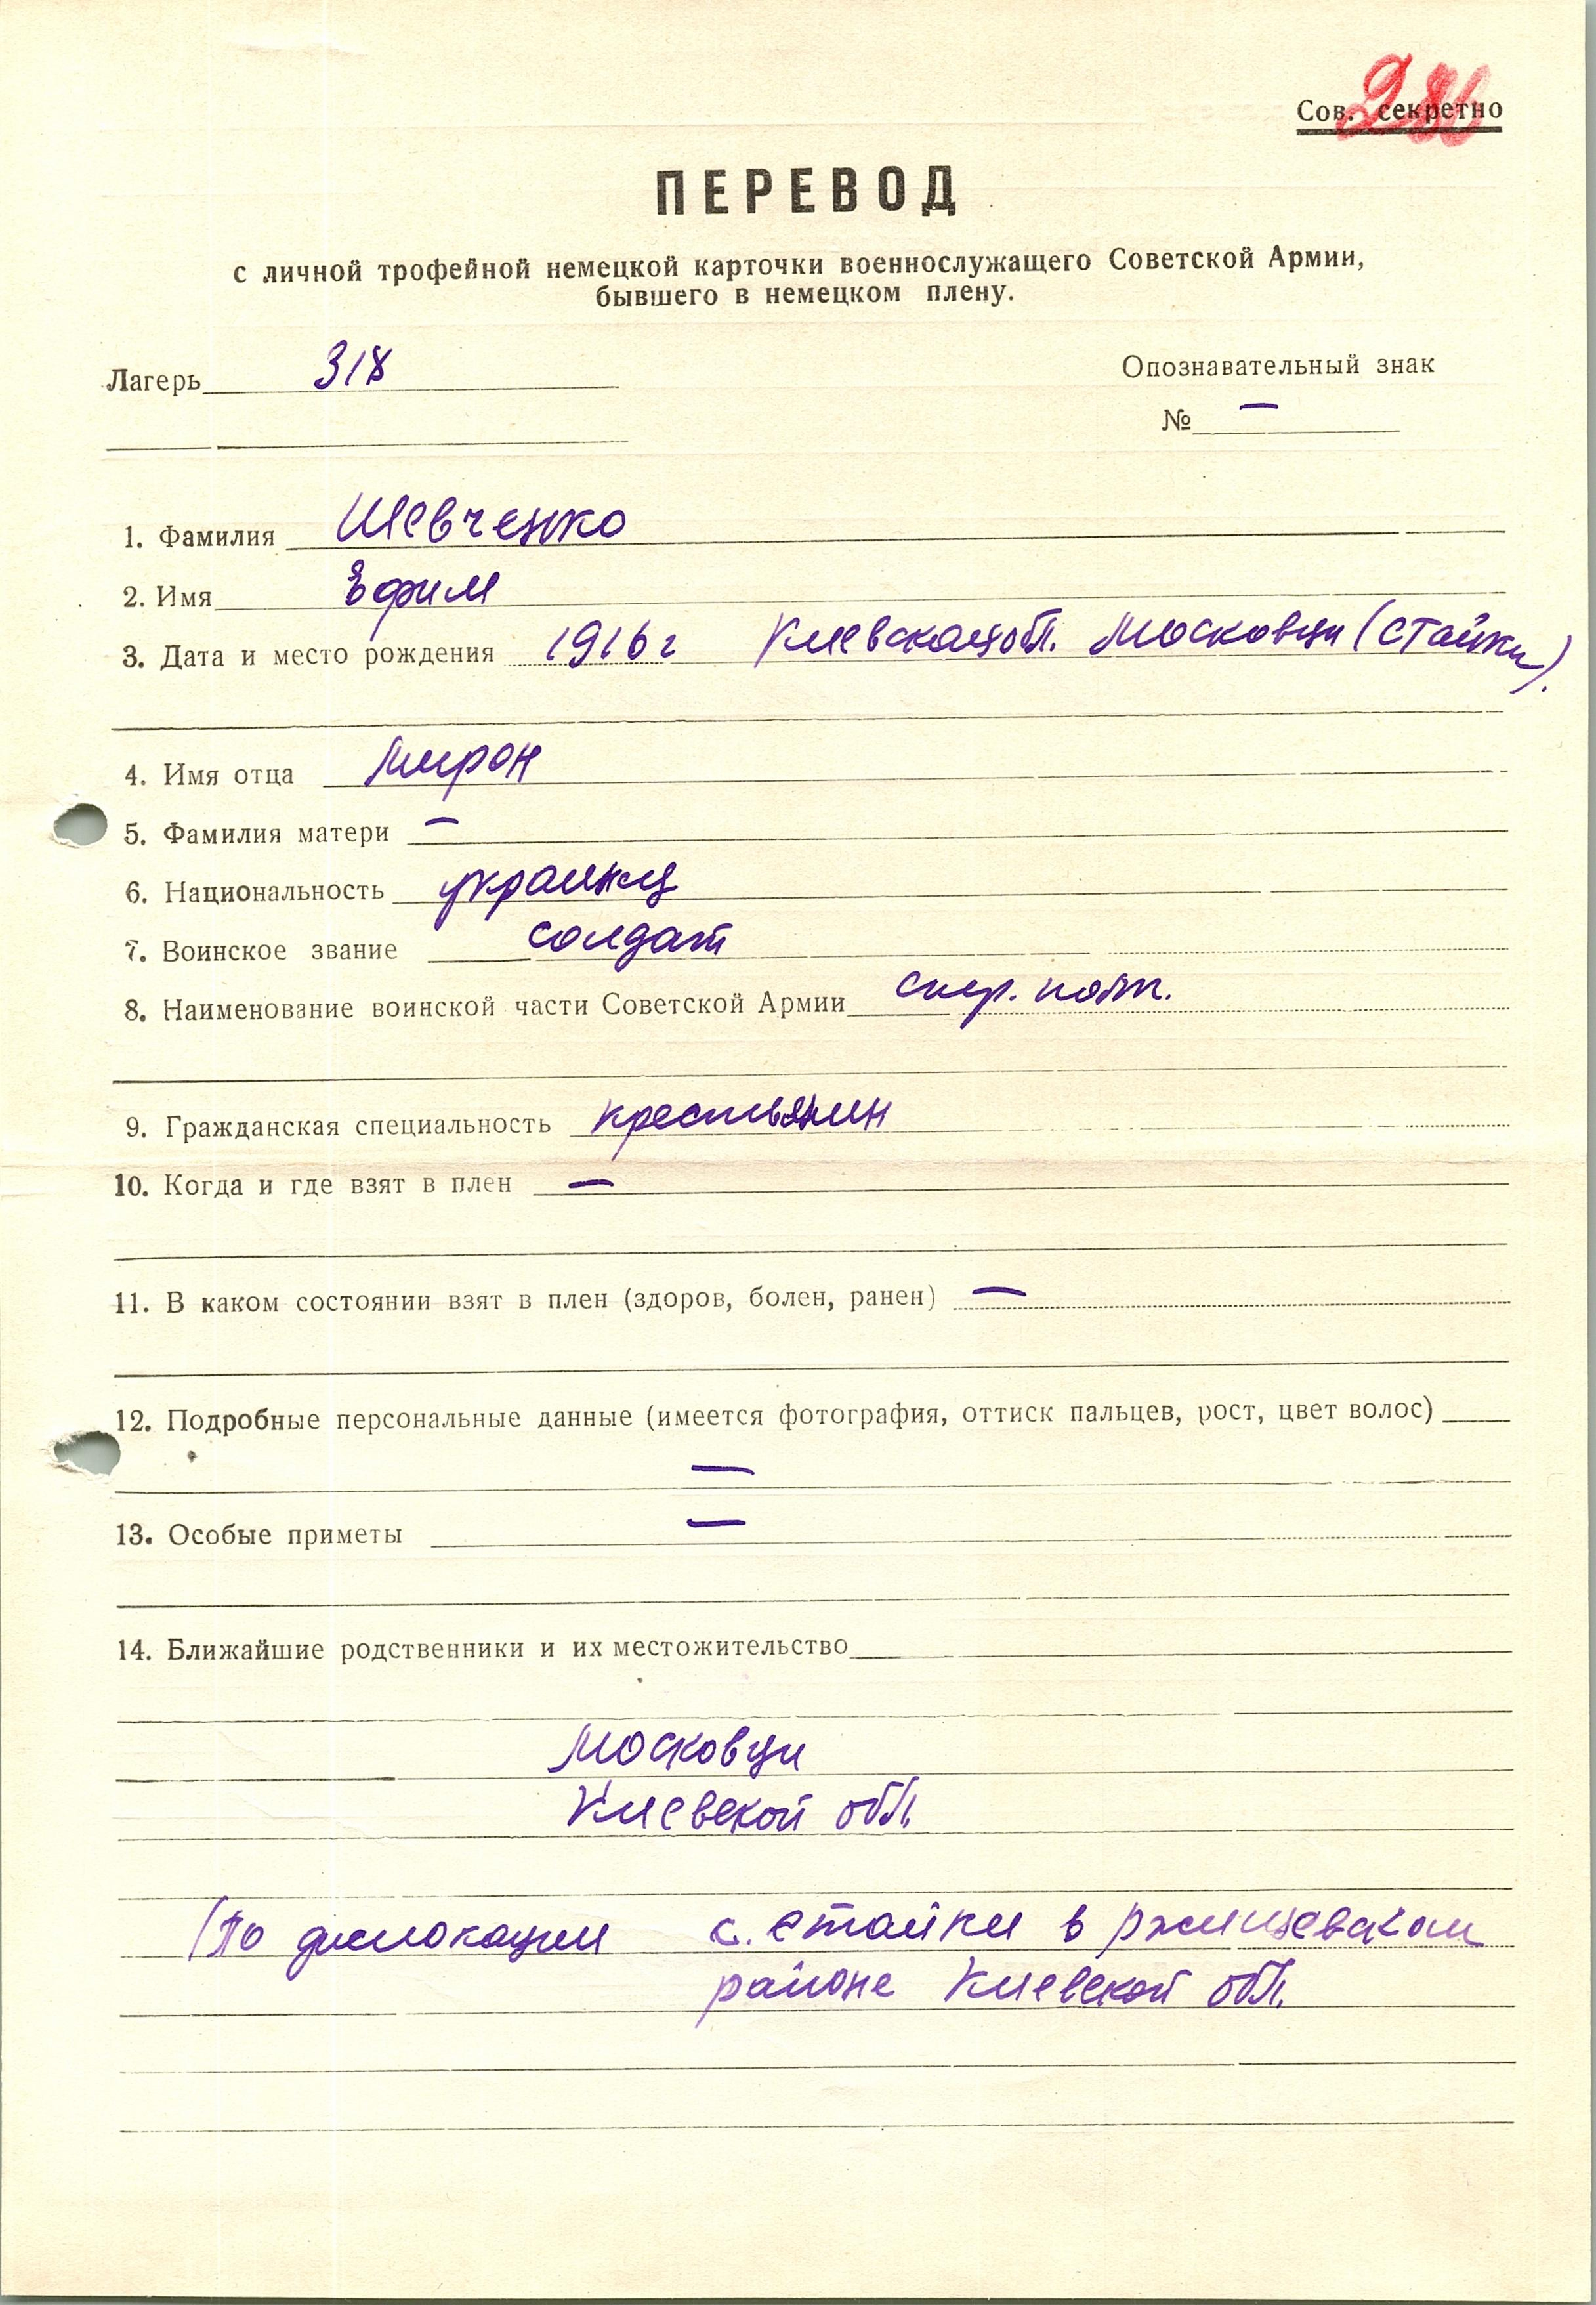 Сов. секретно
ПЕРЕВОД
с личной трофейной немецкой карточки военнослужащего Советской Армии,
бывшего в немецком плену.
Лагерь 318
Опознавательный знак
№ —
1. Фамилия Шевченко
2. Имя Ефим
3. Дата и место рождения 1916 г Киевская обл. Московци (Стайки).
4. Имя отца Мирон
5. Фамилия матери —
6. Национальность украинец
7. Воинское звание солдат
8. Наименование воинской части Советской Армии
9. Гражданская специальность крестьянин
10. Когда и где взят в плен —
11. В каком состоянии взят в плен (здоров, болен, ранен) —
12. Подробные персональные данные (имеется фотография, оттиск пальцев, рост, цвет волос)
—
13. Особые приметы —
14. Ближайшие родственники и их местожительство
Московци
Киевской обл.
(По дислокации с. Стайки в Ржищевском
районе Киевской обл.